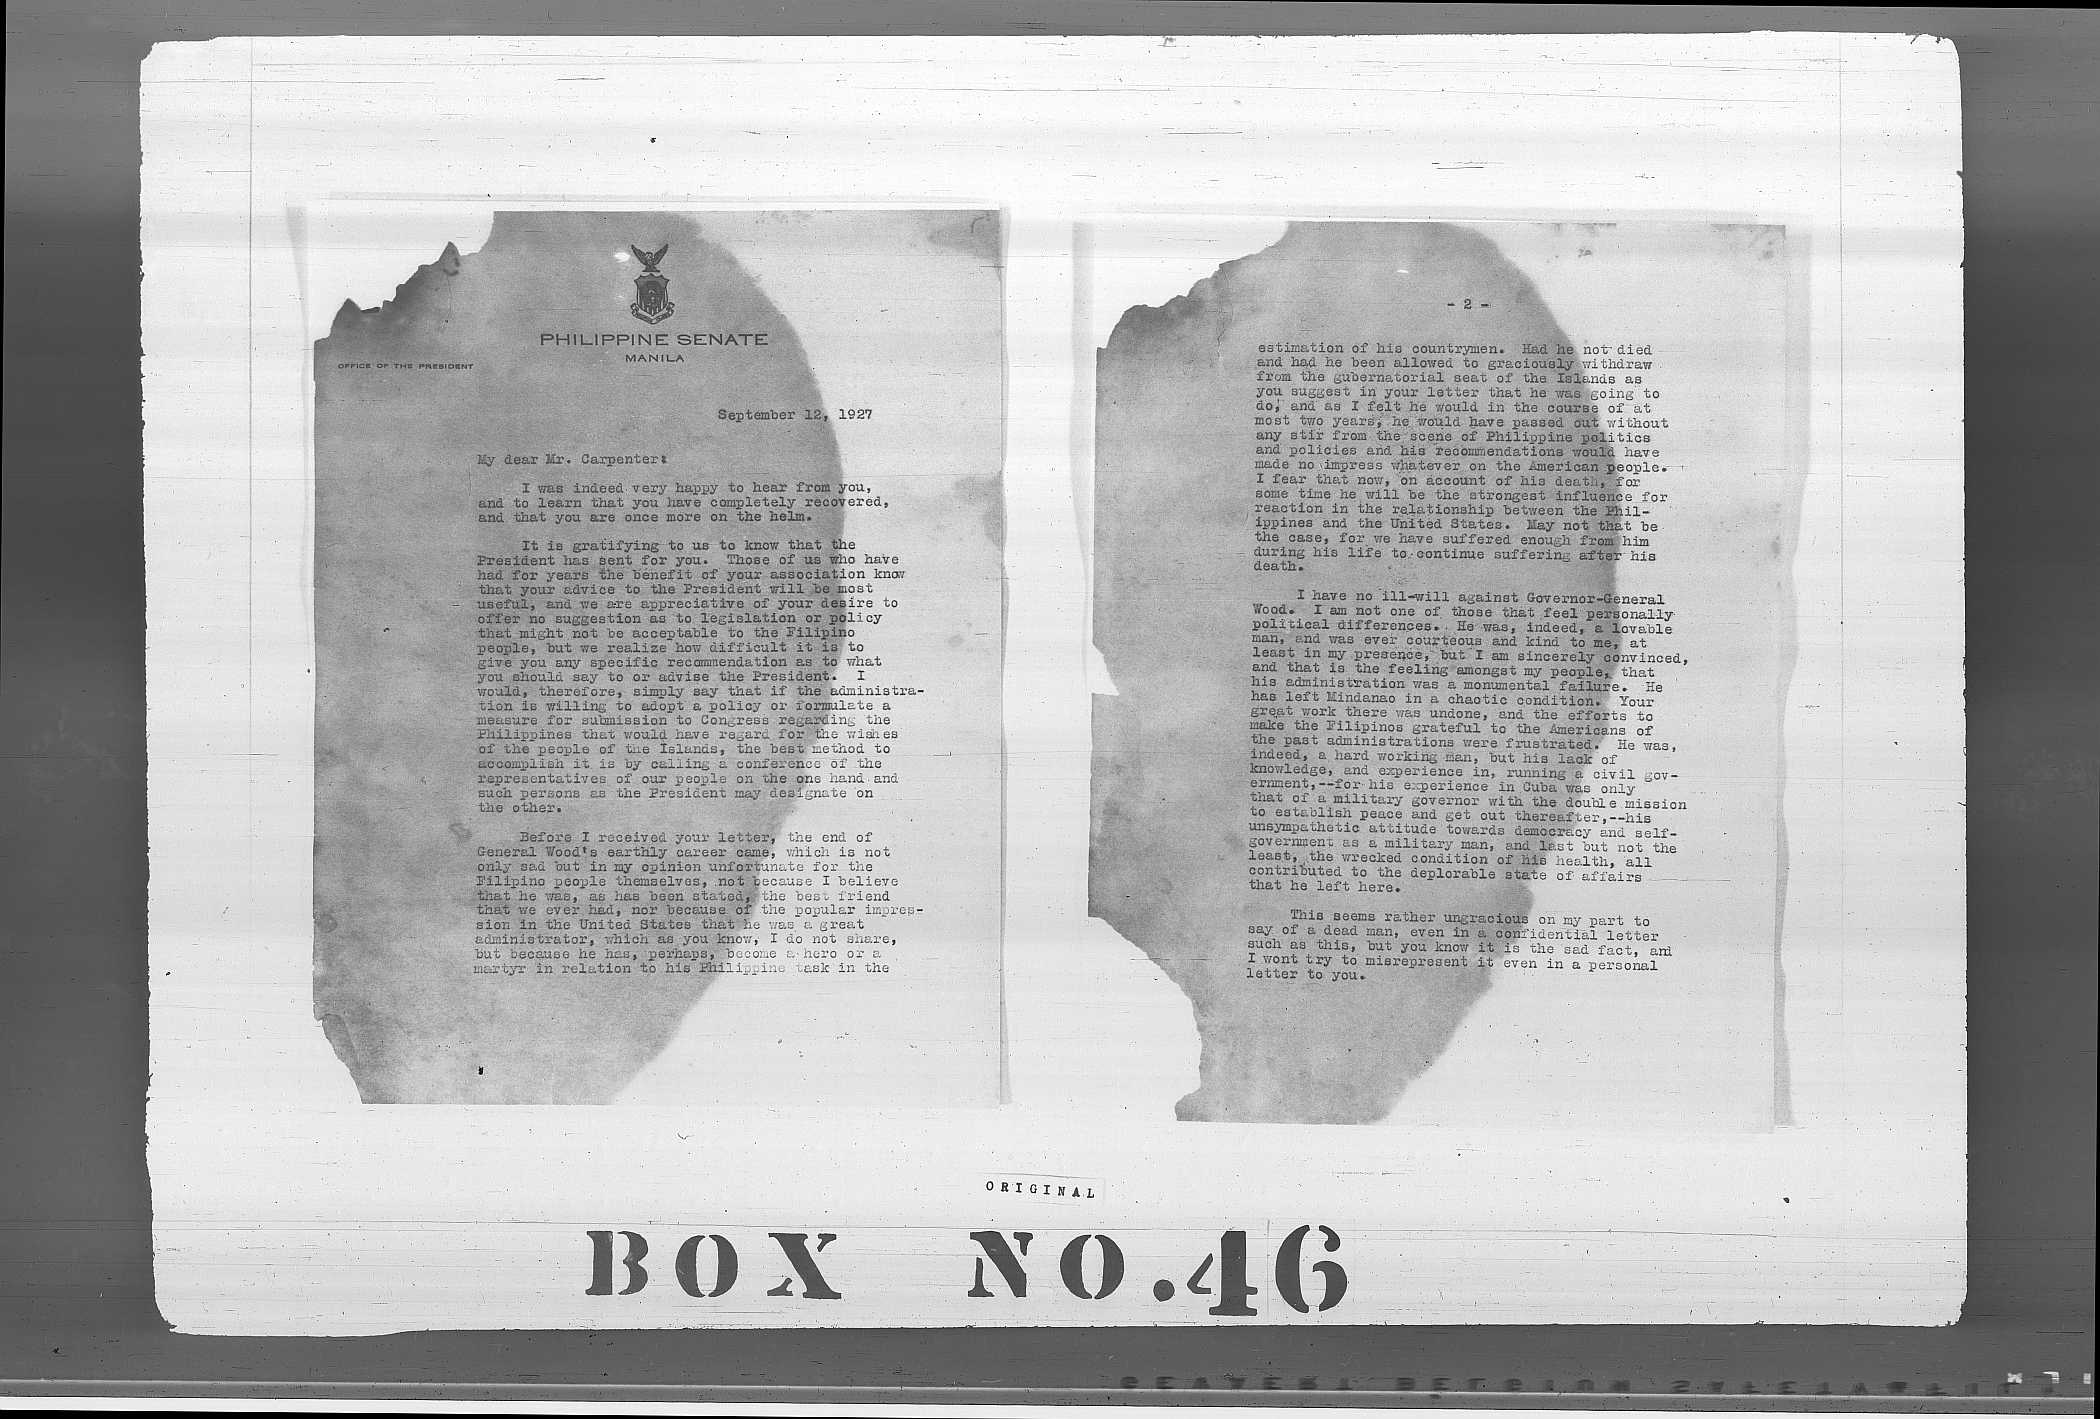 PHILIPPINE SENATE
MANILA
OFFICE OF THE PRESIDENT
September 12, 1927
My dear Mr. Carpenter:
I was indeed very happy to hear from you,
and to learn that you have completely recovered,
and that you are once more on the helm.
It is gratifying to us to know that the
President has sent for you. Those of us who have
had for years the benefit of your association know
that your advice to the President will be most
useful, and we are appreciative of your desire to
offer no suggestion as to legislation or policy
that might not be acceptable to the Filipino
people, but we realize how difficult it is to
give you any specific recommendation as to what
you should say to or advise the President. I
would, therefore, simply say that if the administra-
tion is willing to adopt a policy or formulate a
measure for submission to Congress regarding the
Philippines that would have regard for the wishes
of the people of the Islands, the best method to
accomplish it is by calling a conference of the
representatives of our people on the one hand and
such persons as the President may designate on
the other.
Before I received your letter, the end of
General Wood's earthly career came, which is not
only sad but in my opinion unfortunate for the
Filipino people themselves, not because I believe
that he was, as has been stated, the best friend
that we ever had, nor because of the popular impres-
sion in the United States that he was a great
administrator, which as you know, I do not share,
but because he has, perhaps, become a hero or a
martyr in relation to his Philippine task in the
- 2 -
estimation of his countrymen. Had he not died
and had he been allowed to graciously withdraw
from the gubernatorial seat of the Islands as
you suggest in your letter that he was going to
do, and as I felt he would in the course of at
most two years, he would have passed out without
any stir from the scene of Philippine politics
and policies and his recommendations would have
made no impress whatever on the American people.
I fear that now, on account of his death, for
some time he will be the strongest influence for
reaction in the relationship between the Phil-
ippines and the United States. May not that be
the case, for we have suffered enough from him
during his life to continue suffering after his
death.
I have no ill-will against Governor-General
Wood. I am not one of those that feel personally
political differences. He was, indeed, a lovable
man, and was ever courteous and kind to me, at
least in my presence, but I am sincerely convinced,
and that is the feeling amongst my people, that
his administration was a monumental failure. He
has left Mindanao in a chaotic condition. Your
great work there was undone, and the efforts to
make the Filipinos grateful to the Americans of
the past administrations were frustrated. He was,
indeed, a hard working man, but his lack of
knowledge, and experience in, running a civil gov-
ernment,--for his experience in Cuba was only
that of a military governor with the double mission
to establish peace and get out thereafter,--his
unsympathetic attitude towards democracy and self-
government as a military man, and last but not the
least, the wrecked condition of his health, all
contributed to the deplorable state of affairs
that he left here.
This seems rather ungracious on my part to
say of a dead man, even in a confidential letter
such as this, but you know it is the sad fact, and
I wont try to misrepresent it even in a personal
letter to you.
ORIGINAL
BOX NO. 46